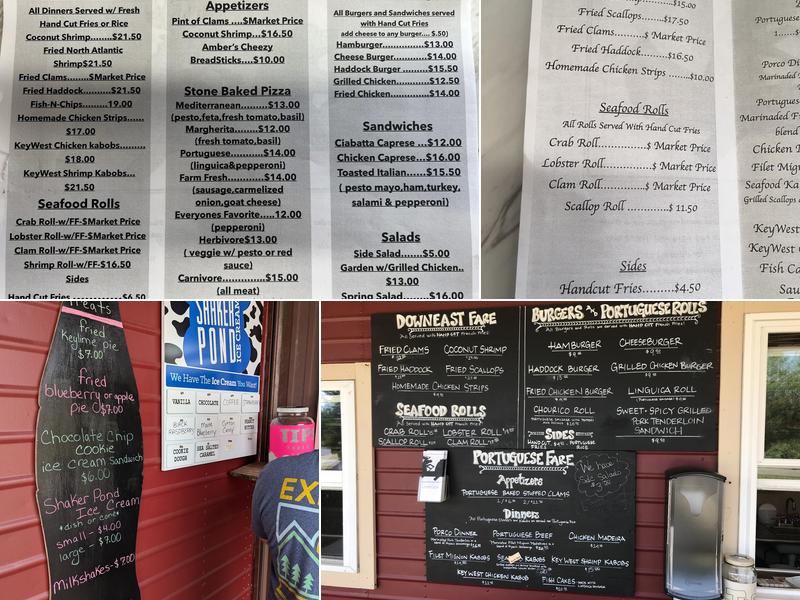 All Dinners Served w/ Fresh
Hand Cut Fries or Rice
Coconut Shrimp.......$21.50
Fried North Atlantic
Shrimp$21.50
Fried Clams........$Market Price
Fried Haddock.........$21.50
Fish-N-Chips........19.00
Homemade Chicken Strips......
$17.00
KeyWest Chicken kabobs.........
$18.00
KeyWest Shrimp Kabobs...
$21.50
Seafood Rolls
Crab Roll-w/FF-$Market Price
Lobster Roll-w/FF-$Market Price
Clam Roll-w/FF-$Market Price
Shrimp Roll-w/FF-$16.50
Sides
Hand Cut Fries..............$6.50
Appetizers
Pint of Clams ....$Market Price
Coconut Shrimp...$16.50
Amber's Cheezy
BreadSticks....$10.00
Stone Baked Pizza
Mediterranean.........$13.00
(pesto,feta,fresh tomato,basil)
Margherita......$12.00
(fresh tomato,basil)
Portuguese.........$14.00
(linguica&pepperoni)
Farm Fresh.......$14.00
(sausage,carmelized
onion,goat cheese)
Everyones Favorite....12.00
(pepperoni)
Herbivore$13.00
( veggie w/ pesto or red
sauce)
Carnivore............$15.00
(all meat)
All Burgers and Sandwiches served
with Hand Cut Fries
add cheese to any burger.... $.50)
Hamburger............$13.00
Cheese Burger......$14.00
Haddock Burger ......$15.50
Grilled Chicken.......$12.50
Fried Chicken.........$14.00
Sandwiches
Ciabatta Caprese ...$12.00
Chicken Caprese...$16.00
Toasted Italian......$15.50
( pesto mayo,ham,turkey,
salami & pepperoni)
Salads
Side Salad.....$5.00
Garden w/Grilled Chicken..
$13.00
Spring Salad.......$16.00
$15.00
Fried Scallops.......$17.50
Fried Clams.......$ Market Price
Fried Haddock.......$16.50
Homemade Chicken Strips .......$10.00
Seafood Rolls
All Rolls Served With Hand Cut Fries
Crab Roll.............$ Market Price
Lobster Roll...........$ Market Price
Clam Roll.............$ Market Price
Scallop Roll ............$ 11.50
Sides
Handcut Fries.........$4.50
Portuguese
Porco Di
Marinaded
Portugues
Marinaded F
blend
Chicken
Filet Mign
Seafood Ka
Grilled Scallops
KeyWest
KeyWest
Fish Ca
Treats
fried
keylime pie
$7.00
fried
blueberry or apple
pie $7.00
Chocolate Chip
cookie
ice cream Sandwich
$6.00
Shaker Pond
Ice Cream
*dish or cone*
small - $4.00
large - $7.00
milkshakes - $7.00
SHAKER
POND
ICE CREAM
We Have The Ice Cream You Want!
VANILLA
CHOCOLATE
COFFEE
BLACK RASPBERRY
Maine Blueberry
Cotton Candy
COOKIE DOUGH
SEA SALTED CARAMEL
TIP
EX
DOWNEAST FARE
All Served with HAND CUT French Fries!
FRIED CLAMS
COCONUT SHRIMP
FRIED HADDOCK
FRIED SCALLOPS
HOMEMADE CHICKEN STRIPS
SEAFOOD ROLLS
All Served with HAND CUT French Fries!
CRAB ROLL
LOBSTER ROLL
SCALLOP ROLL
CLAM ROLL
BURGERS AND PORTUGUESE ROLLS
All Burgers and Rolls are served with HAND CUT French Fries!
HAMBURGER
CHEESEBURGER
HADDOCK BURGER
GRILLED CHICKEN BURGER
FRIED CHICKEN BURGER
LINGUICA ROLL
CHOURICO ROLL
SWEET-SPICY GRILLED
PORK TENDERLOIN
SANDWICH
SIDES
PORTUGUESE FARE
Appetizers
PORTUGUESE BAKED STUFFED CLAMS
We have
Side Salads
Dinners
PORCO DINNER
PORTUGUESE BEEF
CHICKEN MADEIRA
FILET MIGNON KABOBS
KABOBS
KEY WEST SHRIMP KABOBS
KEY WEST CHICKEN KABOB
FISH CAKES